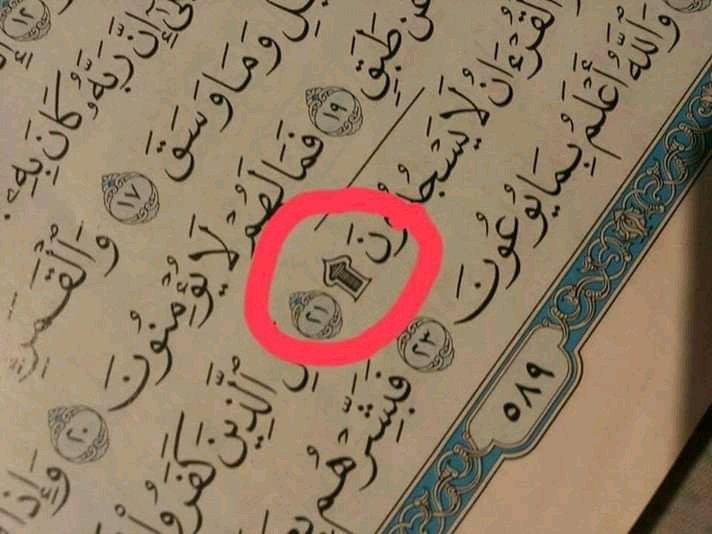 ١٣
إِنَّ رَبَّهُۥ كَانَ بِهِۦ
وَمَا وَسَقَ ١٧ وَٱلْقَمَرِ
عَن طَبَقٍ ١٩ فَمَا لَهُمْ لَا يُؤْمِنُونَ ٢٠ وَإِذَا
ٱلْقُرْءَانُ لَا يَسْجُدُونَ ۩ ٢١ ٱلَّذِينَ كَفَرُوا۟
وَٱللَّهُ أَعْلَمُ بِمَا يُوعُونَ ٢٣ فَبَشِّرْهُم
٥٨٩